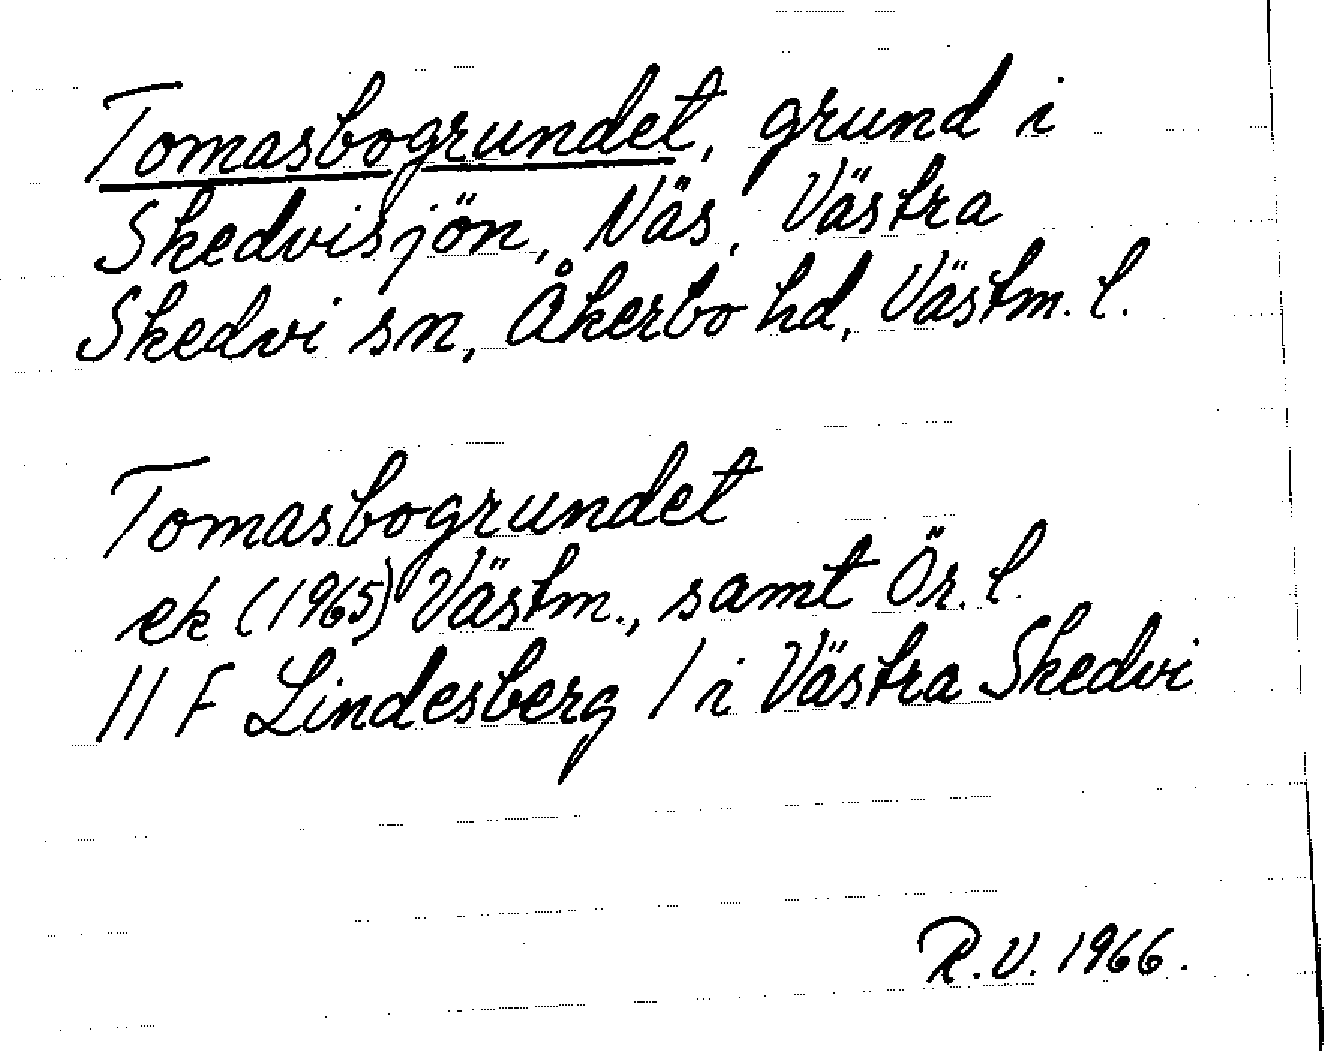 Tomasbogrundet, grund i
Skedvisjön, Näs, Västra
Skedvi sn, Åkerbo hd, Västm. l.
Tomasbogrundet
ek (1965) Västm., samt Ör. l.
11 F Lindesberg / i Västra Skedvi
R.V. 1966.